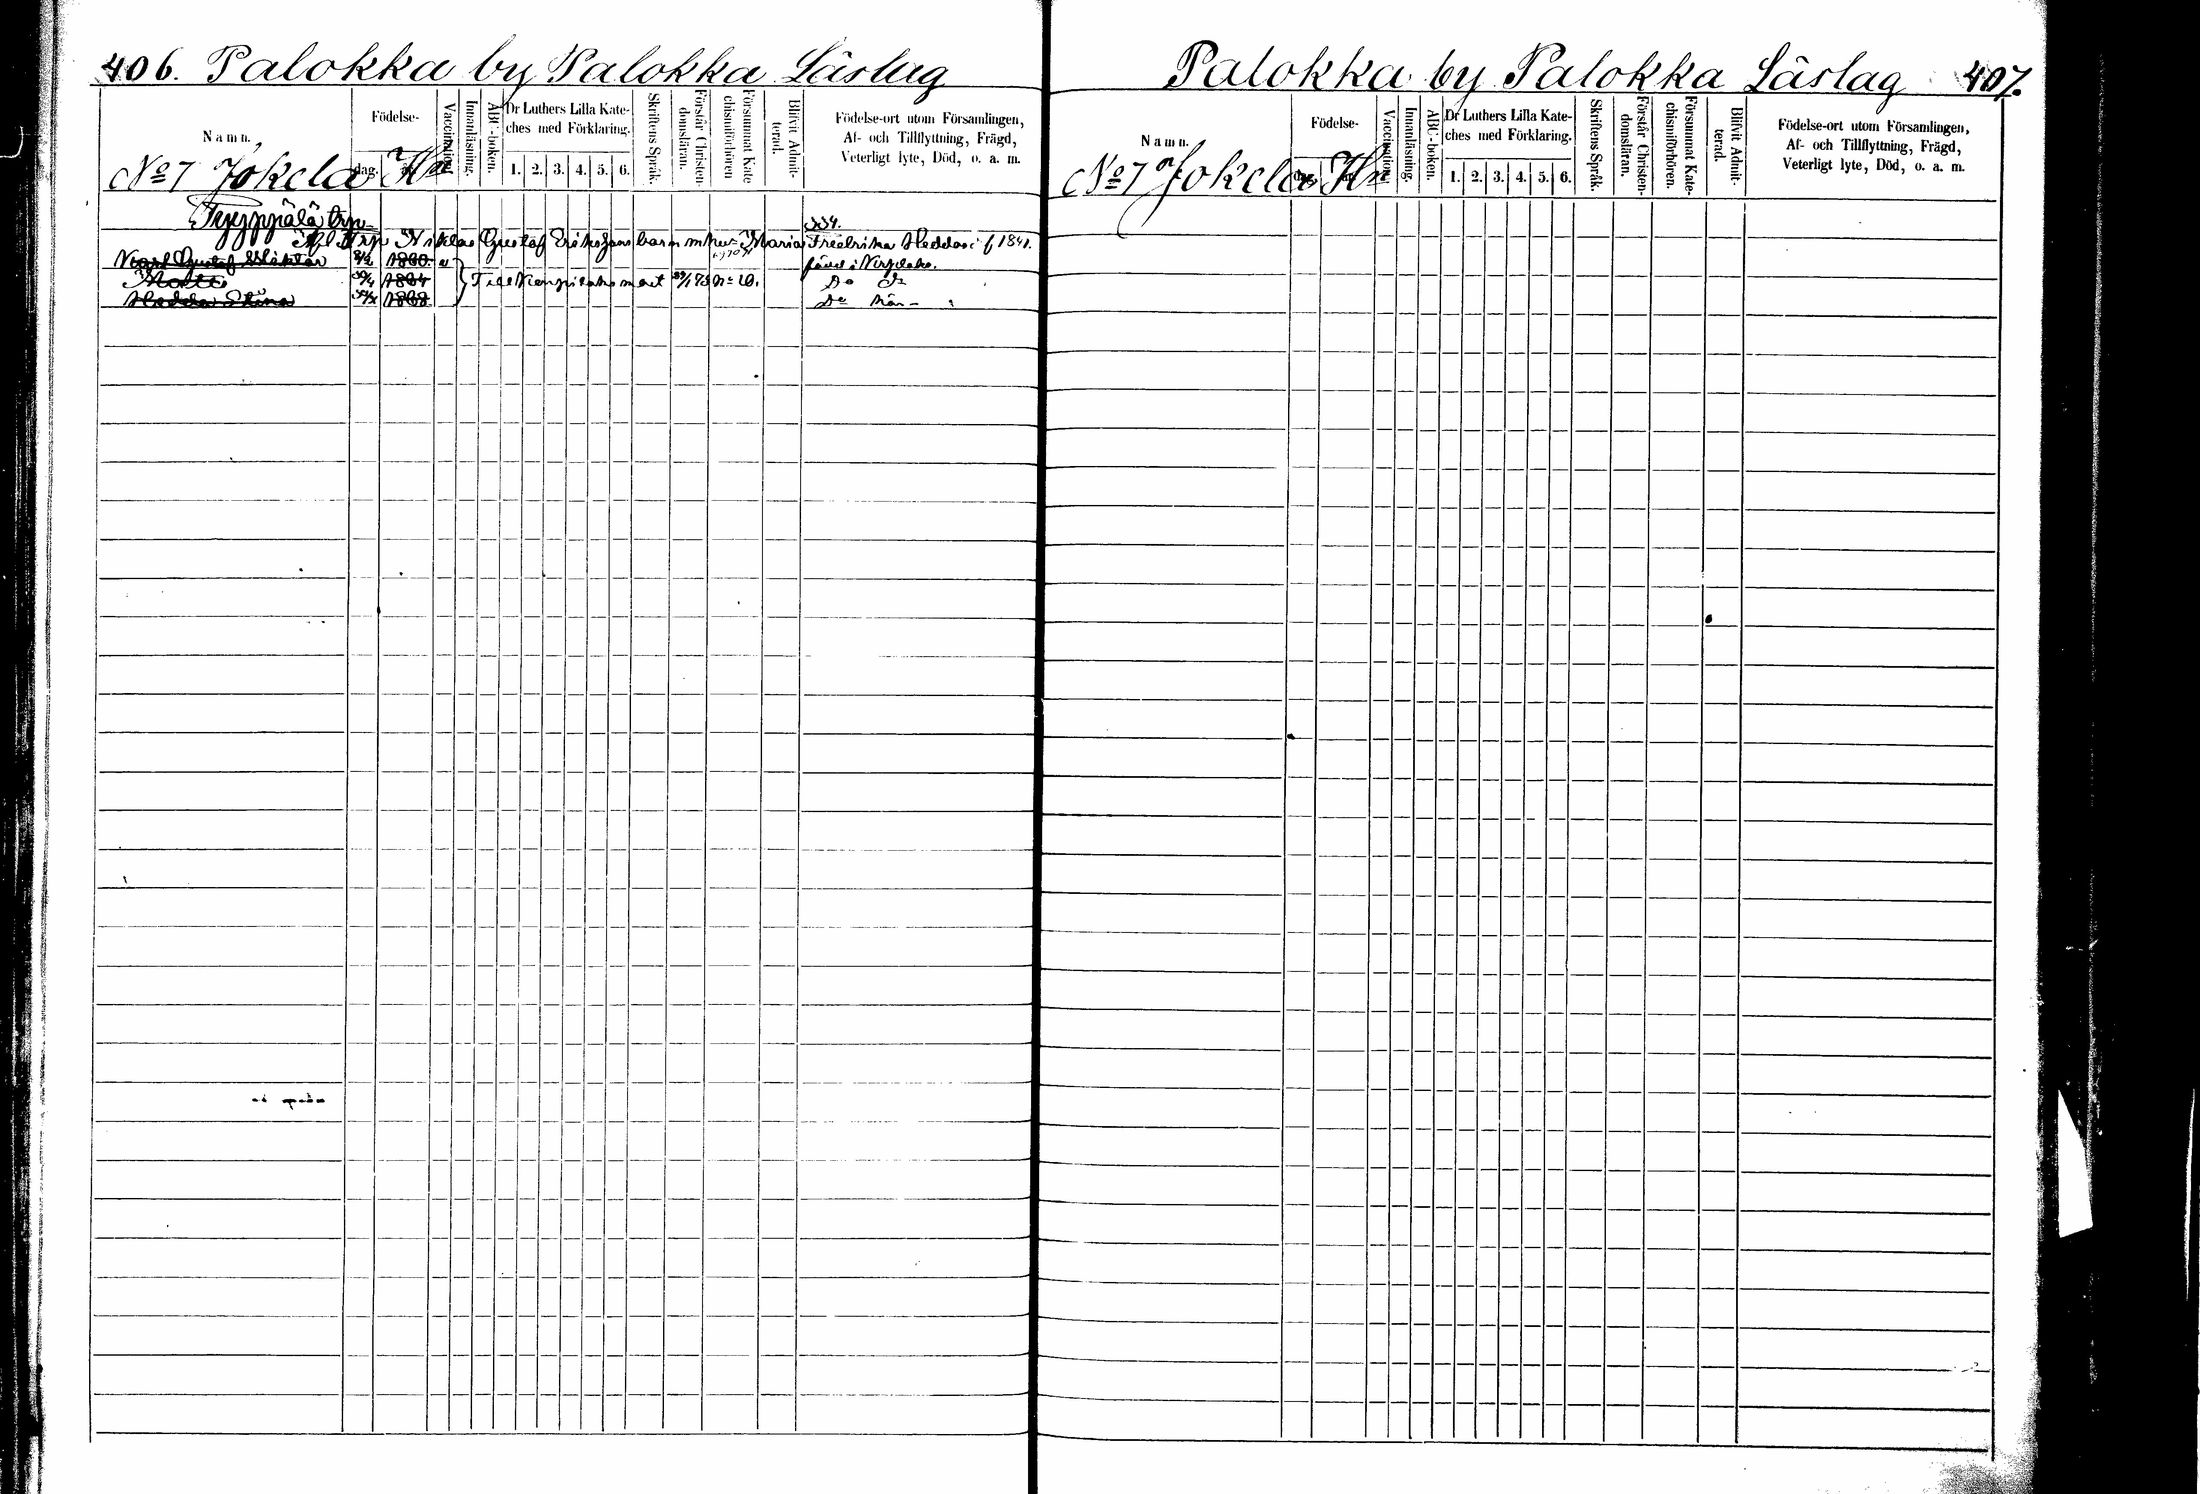 406. Palokka by Palokka Läslag
Namn.
Födelse-
dag.
Vaccination.
Innanläsning.
ABC-boken.
Dr Luthers Lilla Kate-
ches med Förklaring.
1. 2. 3. 4. 5. 6.
Skriftens Språk.
Förstår Christen-
domsläran.
Försummat Kate
chismiförhören
Blifvit Admit-
terad.
Födelse-ort utom Församlingen,
Af- och Tillflyttning, Frägd,
Veterligt lyte, Död, o. a. m.
No 7 Jokela Hn
Tyyppälä trp
334.
Trp Niklas Gustaf Erikssons barn m hu Maria Fredrika Heddas f 1841.
Karl Gustaf Wiktor 1860. född i
Matts 1864 Till 10. Do Do
Hedda Stina 1868 Do här
Palokka by Palokka Läslag 407.
Namn.
Födelse-
Vaccination.
Innanläsning.
ABC-boken.
Dr Luthers Lilla Kate-
ches med Förklaring.
1. 2. 3. 4. 5. 6.
Skriftens Språk.
Förstår Christen-
domsläran.
Försummat Kate-
chismiförhören.
Blifvit Admit-
terad.
Födelse-ort utom Församlingen,
Af- och Tillflyttning, Frägd,
Veterligt lyte, Död, o. a. m.
No 7 Jokela Hn